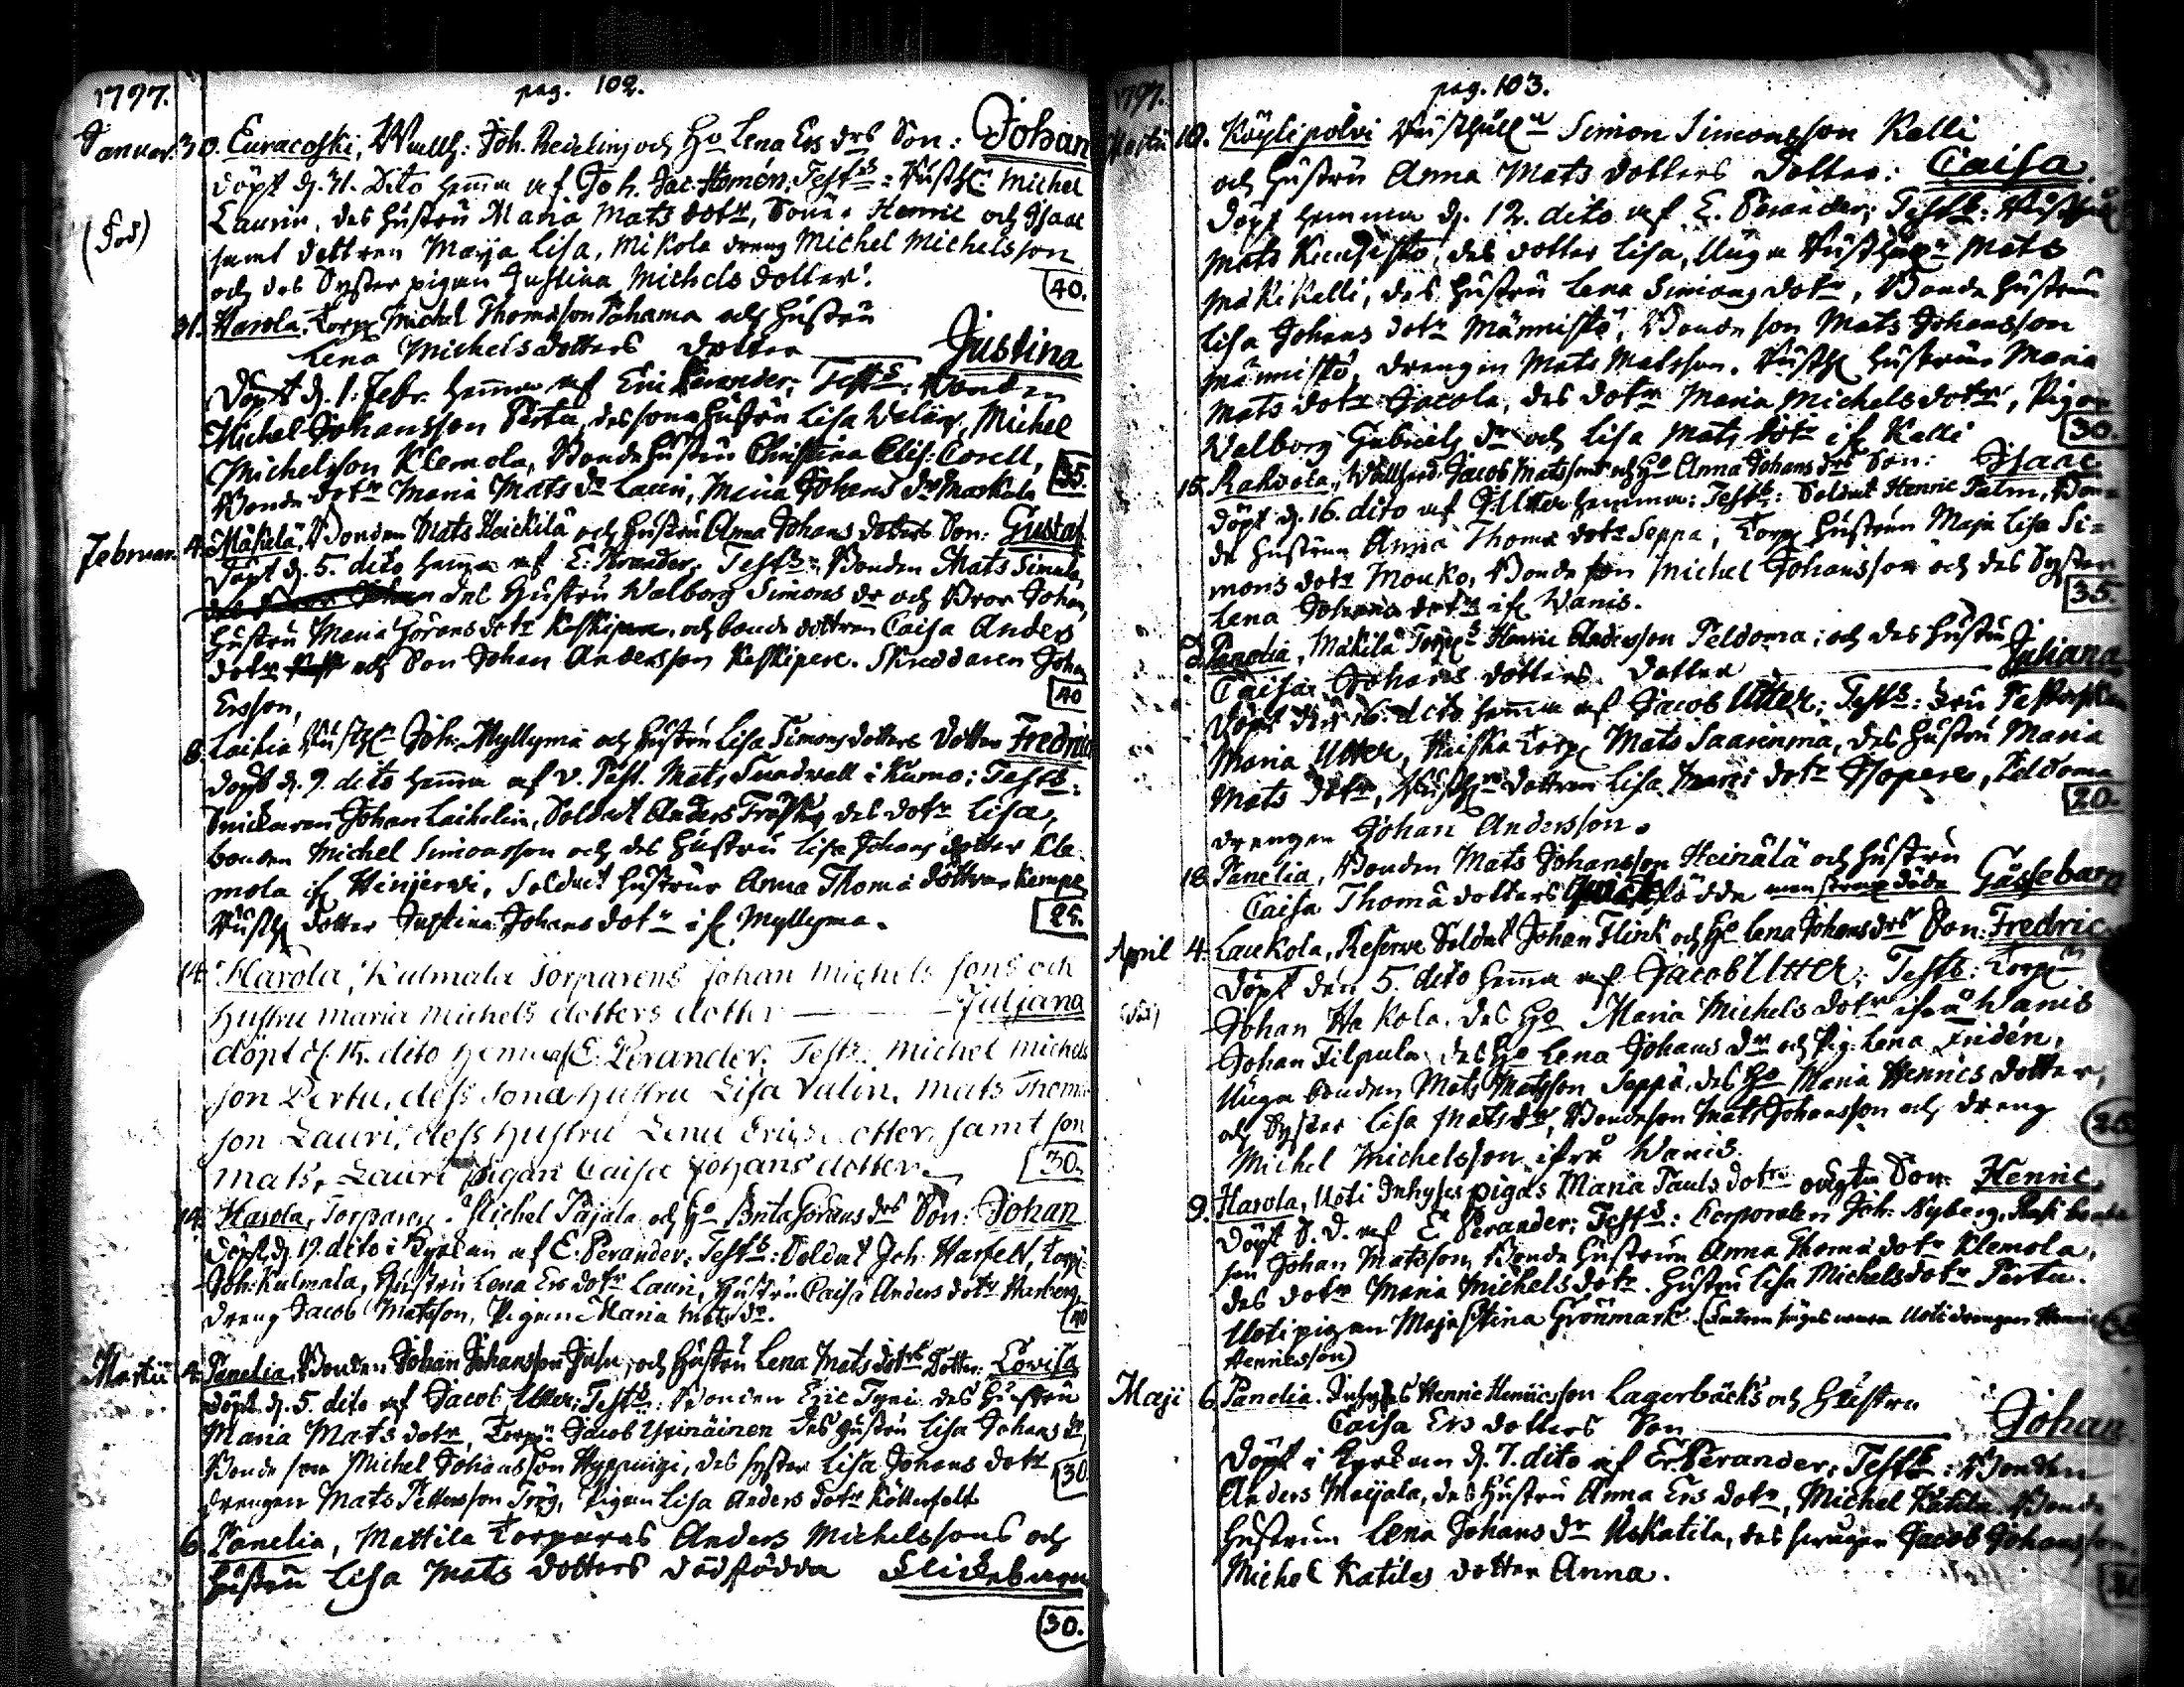 1797.
pag. 102.
Januar. 30. Euracoski, Wallh: Joh. Redelins och Ho Lena Ers drs Son: Johan
döpt d. 31. Dito hema af Joh. Jac. Homén; Tests: Rusth: Michel
Laurin, des Hustru Maria Mats dotr, Söner Henric och Isaac
(Fod)
samt dottren Maija Lisa, Mikola dreng Michel Michelsson
och des Syster pigan Justina Michels dotter. 40.
31. Harola, Torp Michel Thomasson Pohama och Hustru
Lena Michelsdotters dotter Justina
Döpt d. 1. Febr. hema af Eric Perander; Tests: Bonden
Michel Johansson Perttu, des sonahustru Lisa Walin, Michel
Michelsson Klemola, Bondehustru Christina Elis: Corell,
Bonde dotr Maria Mats dr Lauri, Maria Johans dr Maskala 35.
Februar. 4. Mäkilä, Bonden Mats Heickilä och Hustru Anna Johans dotters Son: Gustaf
Döpt d. 5. dito hema af E: Perander, Tests: Bonden Mats Simula,
des Hustru Walborg Simons dr och Bror Johan,
Hustru Maria Jörans dotr Keskipere, och bonde dottren Caisa Anders
dotr och Son Johan Andersson Keskipere. Skreddaren Johan
Ersson, 40
8. Laihia Rusth Joh: Myllymä och Hustru Lisa Simons dotters Dotter Fredrica
döpt d. 9. dito hema af v. Past. Mats Sundwall i Kumo; Tests:
Snickaren Johan Laihelin, Soldat Anders Träsk, des dotr Lisa,
bonden Michel Simonsson och des Hustru Lisa Johans dotter Kle-
mola if Hinjerwi, Soldat Hustrur Anna Thoma dotter Kempe
Rusth dotter Justina Johans dotr if Myllyma. 25.
14. Harola, Kulmala Torparens Johan Michels sons och
Hustru maria michels dotters dotter Juliana
döpt d. 15. dito hema af E. Perander. Test: Michel michels
son Pertu, dess Sona hustru Lisa Valin, mats Thoma
son Lauri, dess hustru Lena Erics dotter, samt son
mats, Lauri pigan Caisa Johans dotter. 30.
14. Harola, Torparen Michel Pajala och Ho Brita Jörans drs Son: Johan
Döpt d. 19. dito i Kyrkan af E. Perander; Tests: Soldat Joh: Harfelt, Torp
Joh: Kulmala, Hustru Lena Ers dotr Lauri, Hustru Caisa Anders dotr Harberg,
Dreng Jacob Matsson, Pigan Maria Mats dr. 40
Martii 4. Panelia, Bonden Johan Johansson Jusu, och Hustru Lena Mats dotrs Dotter: Lovisa
döpt d. 5. dito af Jacob Utter; Tests: Bonden Eric Tyni des Hustru
Maria Mats dotr, Torp. Jacob Yrinäinen des Hustru Lisa Johans dr,
Bonde son Michel Johansson Hyppingi, des syster Lisa Johans dotr
Drengen Mats Pettersson Tryg, Pigan Lisa Anders dotr Kötterfelt 30
6. Panelia, Mattila Torparens Anders Michelssons och
Hustru Lisa Mats dotters dödfödda Flickebarn
30.
1797.
pag. 103.
Martii 10. Köylipolvi Rusthåll Simon Simonsson Kalli
och Hustru Anna Mats dotters Dotter: Caisa.
Döpt hemma d. 12. dito af E. Perander; Tests: Rusth
Mats Kundisto, des dotter Lisa, Unga Rusth Mats
Mäkikalli, des Hustru Lena Simons dotr, Bonde Hustrun
Lisa Johans dotr Männistö, Bonde son Mats Johansson
Männistö, Drengen Mats Matsson. Rusth Hustrun Maria
Mats dotr Jacola, des dotr Maria Michels dotr, Pigor
Walborg Gabriels dr och Lisa Mats dotr if Kalli 30.
15. Rahvola, Wallherd Jacob Matssons och Ho Anna Johans drs Son: Isaac
Döpt d. 16. dito af J. Utter hemma: Tests: Soldat Henric Palm, Bon-
de Hustrun Anna Thoma dotr Seppä, Torp Hustrun Maja Lisa Si=
mons dotr Mouko, Bonde son Michel Johansson och des Syster
Lena Johans dotr if Wanis. 35.
Panelia, Makilä Torp Henric Andersson Peldoma; och des Hustru
Caisa Johans dotters Dotter Juliana
Döpt den 16. dito hema af Jacob Utter; Tests: Fru
Maria Utter, Heiska Torp Mats Saarinma, des Hustru Maria
Mats dotr, Rusth dottren Lisa dotr Isopere, Peldoma
drengen Johan Andersson. 20.
18. Panelia, Bonden Mats Johansson Heinälä och Hustru
Caisa Thoma dotters födde men strax döde Gossebarn
April 4. Laukola, Reserve Soldat Johan Flink och Ho Lena Johans drs Son: Fredric
Döpt den 5. dito hema af Jacob Utter; Tests: Torp
Johan Hakola, des Ho Maria Michels dotr ifrå Wanis
Johan Filpula des Ho Lena Johans dr och Pig. Lena Fridén,
Unga bonden Mats Matsson Seppä, des Ho Maria Henrics dotter,
och Syster Lisa Mats dr, Bondeson Mats Johansson och dreng
Michel Michelsson ifrå Wanis.
9. Harola, Uoti Inhyses pigas Maria Pauls dotr oägta Son: Henric,
Döpt S. D. af E Perander; Tests: Corporalen Joh: Nyberg, Rask bonde
son Johan Matsson, Bonde Hustrun Anna Thoma dotr Klemola,
des dotr Maria Michels dotr. Hustru Lisa Michels dotr Perttu.
Uoti pigan Maja Stina Grönmark. (Fadren säges vara Uoti drengen Henric
Henricsson)
Maji 6. Panelia. Inhyses Henric Henricsson Lagerbäcks och Hustru
Caisa Ers dotters Son Johan
Döpt i Kyrkan d. 7. dito af Er. Perander; Tests: Bonden
Anders Maijala, des Hustru Anna Ers dotr, Michel Katila Bonde
Hustrun Lena Johans dr Uskatila, des svåger Jacob Johansson
Michel Katilas dotter Anna.